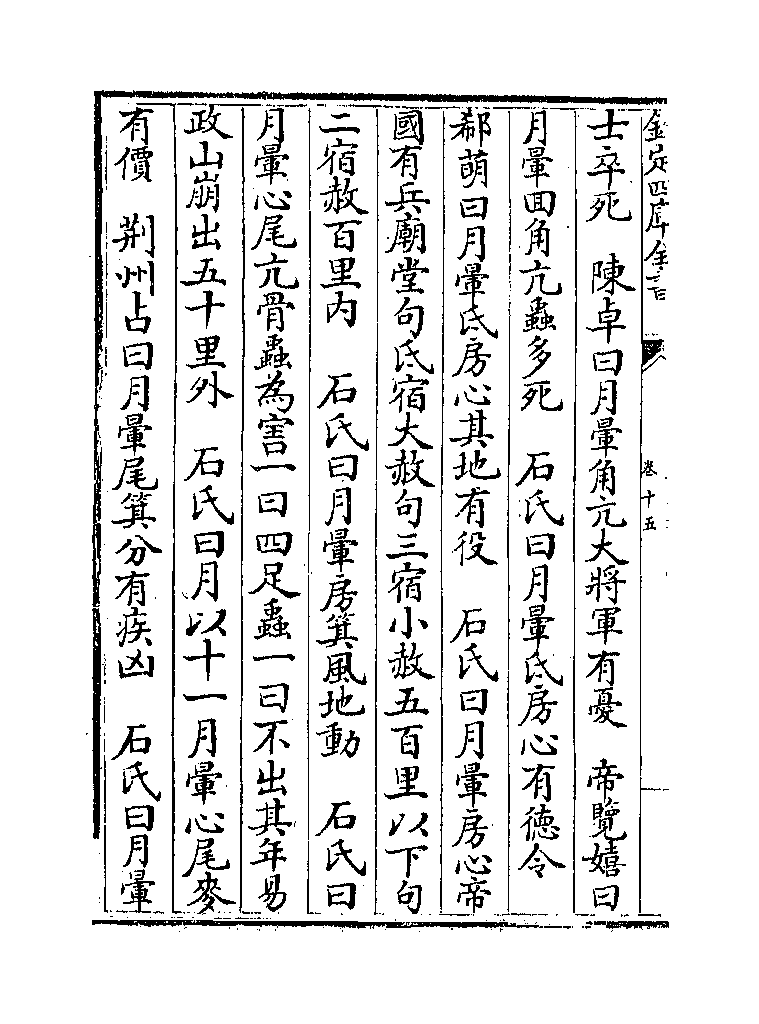 欽定四庫全書
卷十五
士卒死　陳卓曰月暈角亢大將軍有憂　帝覽嬉曰
月暈回角亢蟲多死　石氏曰月暈氐房心有德令
郗萌曰月暈氐房心其地有役　石氏曰月暈房心帝
國有兵廟堂句氐宿大赦句三宿小赦五百里以下句
二宿赦百里内　石氏曰月暈房箕風地動　石氏曰
月暈心尾亢骨蟲為害一曰四足蟲一曰不出其年易
政山崩出五十里外　石氏曰月以十一月暈心尾麥
有價　荆州占曰月暈尾箕分有疾凶　石氏曰月暈